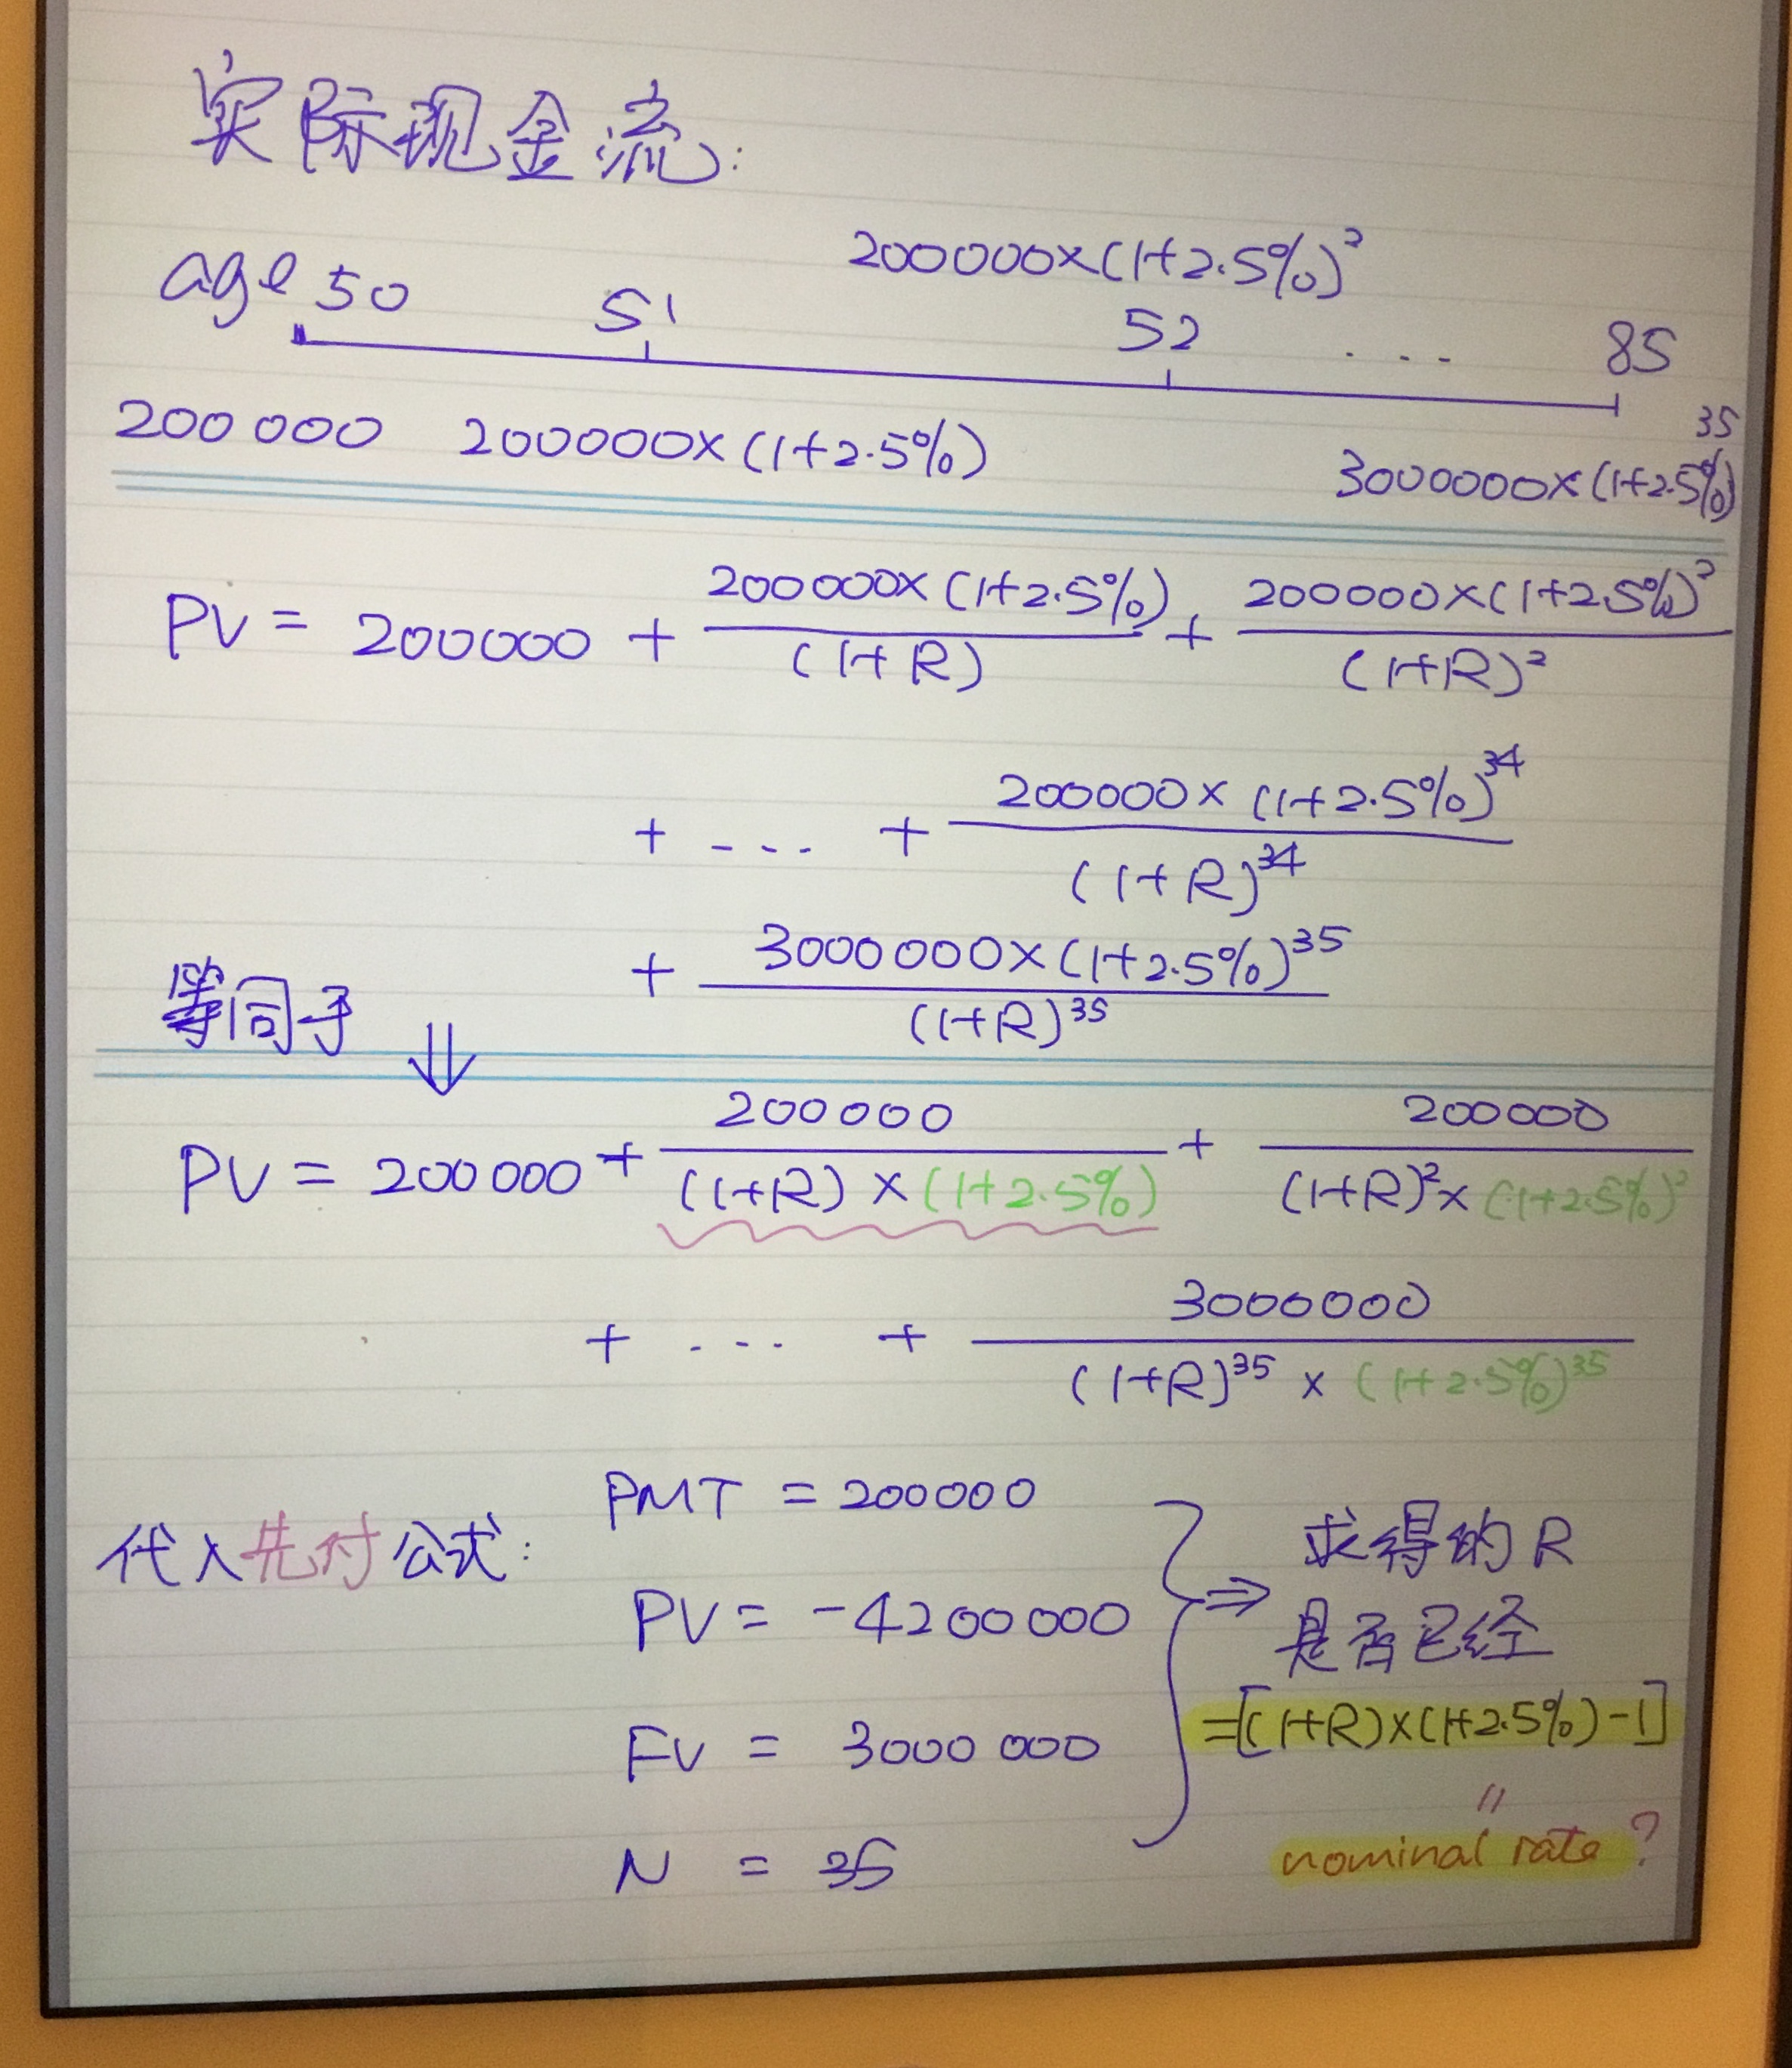 实际现金流:
200000×(1+2.5%)²
age 50 51 52 ... 85
200000 200000×(1+2.5%) 3000000×(1+2.5%)³⁵
PV = 200000 + 200000×(1+2.5%)/(1+R) + 200000×(1+2.5%)²/(1+R)²
+ ... + 200000×(1+2.5%)³⁴/(1+R)³⁴
+ 3000000×(1+2.5%)³⁵/(1+R)³⁵
等同于 ⇓
PV = 200000 + 200000/((1+R)×(1+2.5%)) + 200000/((1+R)²×(1+2.5%)²)
+ ... + 3000000/((1+R)³⁵×(1+2.5%)³⁵)
代入先付公式:
PMT = 200000
PV = -4200000
FV = 3000000
N = 35
⇒ 求得的R
是否已经
=[(1+R)×(1+2.5%)-1]
=
nominal rate ?